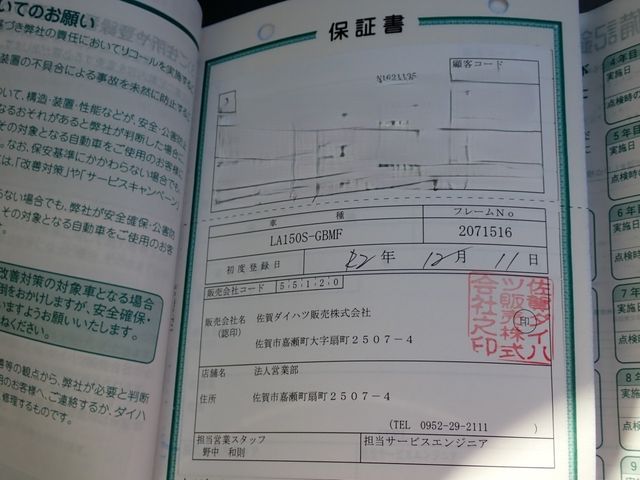 いてのお願い
づき弊社の責任においてリコールを実施する
装置の不具合による事故を未然に防止する
いて、構造・装置・性能などが、安全・公害防
なるおそれがあると弊社が判断した場合に
その対象となる自動車をご使用のお客様に
。なお、保安基準にかかわらない場合でも
は、「改善対策」や「サービスキャンペーン」
らない場合でも、弊社が安全確保・公害防
その対象となる自動車をご使用のお客
改善対策の対象車となる場合
倒をおかけしますが、安全確保・
いますようお願いいたします。
ねください。
善等の観点から、弊社が必要と判断
用のお客様へ、ご連絡するか、ダイハ
修理するものです。
保証書
顧客コード
車種
フレームNo
LA150S-GBMF
2071516
初度登録日
年 12月 11日
販売会社コード 55120
販売会社名 佐賀ダイハツ販売株式会社
(認印)
佐賀市嘉瀬町大字扇町2507-4
佐賀ダイハ
ツ販売株式
会社之印
印
店舗名 法人営業部
住所 佐賀市嘉瀬町扇町2507-4
(TEL 0952-29-2111 )
担当営業スタッフ
野中 和則
担当サービスエンジニア
4年目
実施日
点検時の
5年目
実施日
点検時の
6年目
実施日
点検時
7年
実施
点検時
8年
実施
点検
9